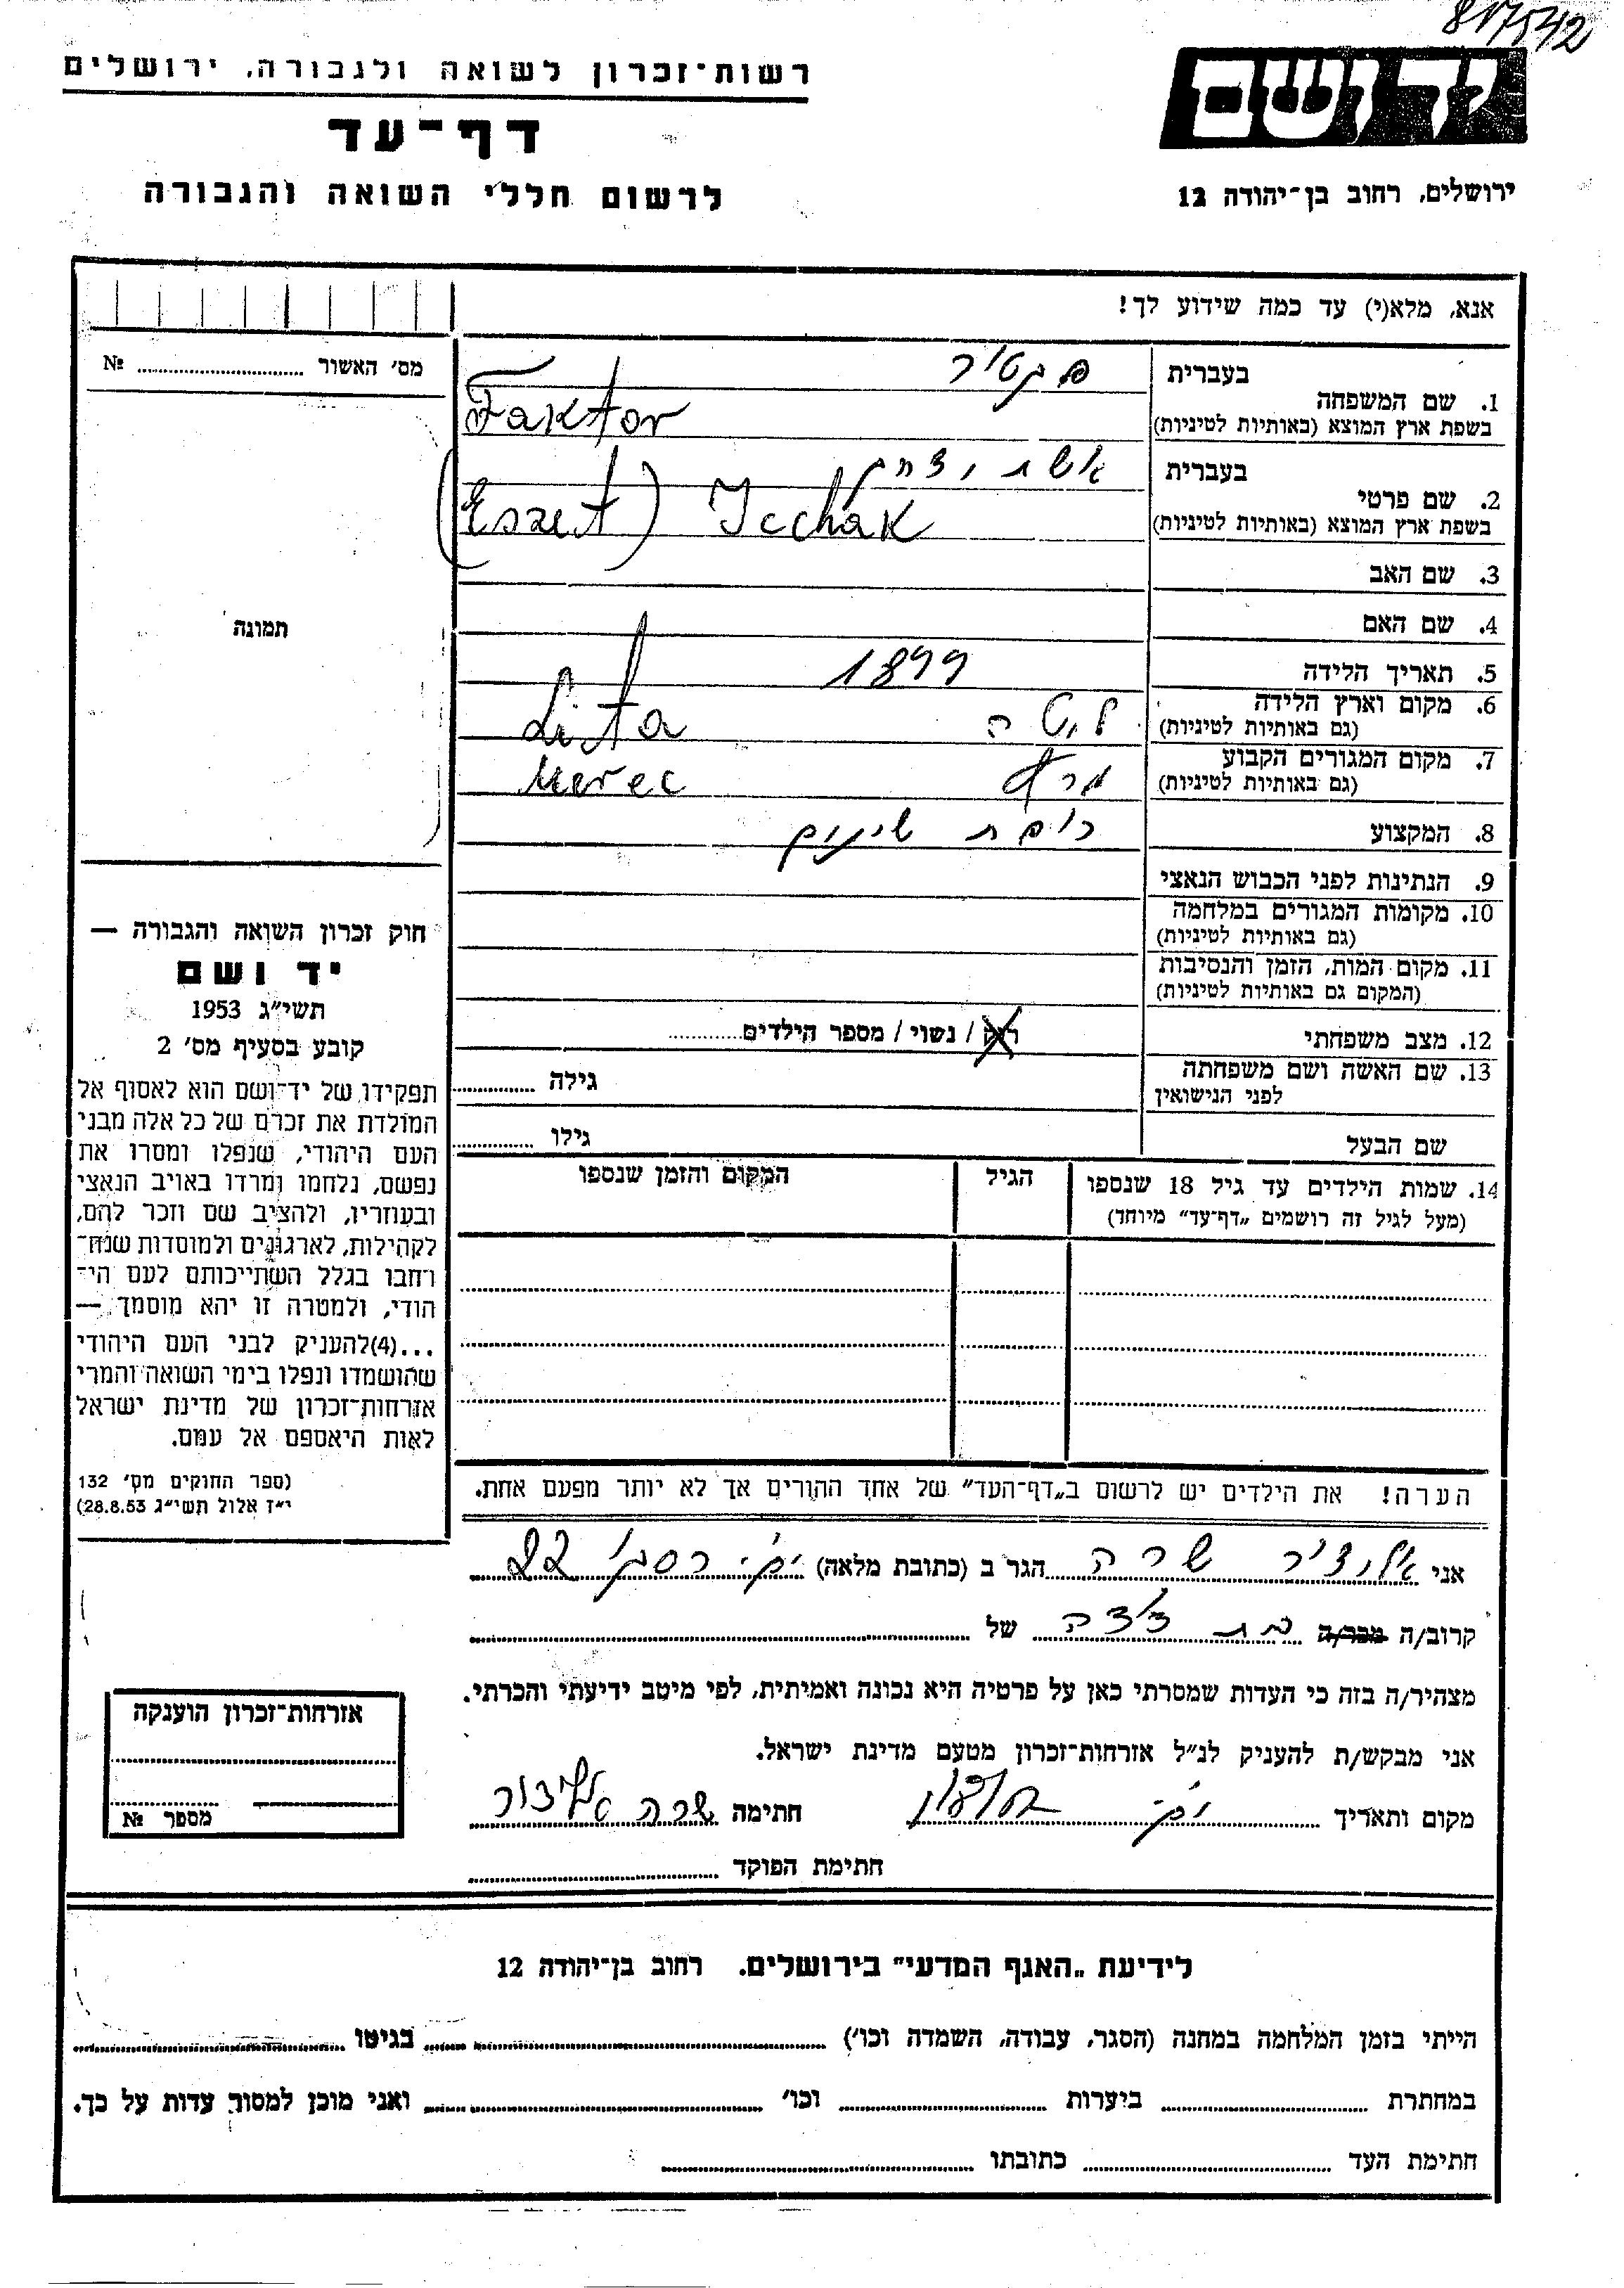 817542
יד ושם
ירושלים, רחוב בן־יהודה 12
רשות־זכרון לשואה ולגבורה, ירושלים
דף־עד
לרשום חללי השואה והגבורה
אנא, מלא(י) עד כמה שידוע לך!
מס׳ האשור .......... №
תמונה
1. שם המשפחה
בעברית פקטור
בשפת ארץ המוצא (באותיות לטיניות) Faktor
2. שם פרטי
בעברית אשת יצחק
בשפת ארץ המוצא (באותיות לטיניות) (Eszet) Icchak
3. שם האב
4. שם האם
5. תאריך הלידה 1899
6. מקום וארץ הלידה ליטה Lita
(גם באותיות לטיניות)
7. מקום המגורים הקבוע מרץ Merec
(גם באותיות לטיניות)
8. המקצוע רופאת שינים
9. הנתינות לפני הכבוש הנאצי
10. מקומות המגורים במלחמה
(גם באותיות לטיניות)
11. מקום המות, הזמן והנסיבות
(המקום גם באותיות לטיניות)
12. מצב משפחתי רוק / נשוי / מספר הילדים..........
13. שם האשה ושם משפחתה גילה ..........
לפני הנישואין
שם הבעל גילו ..........
14. שמות הילדים עד גיל 18 שנספו הגיל המקום והזמן שנספו
(מעל לגיל זה רושמים „דף־עד" מיוחד)
חוק זכרון השואה והגבורה —
יד ושם
תשי"ג 1953
קובע בסעיף מס׳ 2
תפקידו של יד־ושם הוא לאסוף אל
המולדת את זכרם של כל אלה מבני
העם היהודי, שנפלו ומסרו את
נפשם, נלחמו ומרדו באויב הנאצי
ובעוזריו, ולהציב שם וזכר להם,
לקהילות, לארגונים ולמוסדות שנח־
רחבו בגלל השתייכותם לעם הי־
הודי, ולמטרה זו יהא מוסמך, —
...(4)להעניק לבני העם היהודי
שהושמדו ונפלו בימי השואה והמרי
אזרחות־זכרון של מדינת ישראל
לאות היאספם אל עמם.
(ספר החוקים מס׳ 132
י"ז אלול תשי"ג 28.8.53)
הערה! את הילדים יש לרשום ב„דף־העד" של אחד ההורים אך לא יותר מפעם אחת.
אני שרה הגר ב (כתובת מלאה) 22
קרוב/ה מכר/ה בת דודה של ..........
מצהיר/ה בזה כי העדות שמסרתי כאן על פרטיה היא נכונה ואמיתית, לפי מיטב ידיעתי והכרתי.
אני מבקש/ת להעניק לנ"ל אזרחות־זכרון מטעם מדינת ישראל.
מקום ותאריך .......... חתימה שרה
חתימת הפוקד ..........
אזרחות־זכרון הוענקה
מספר №
לידיעת „האגף המדעי" בירושלים. רחוב בן־יהודה 12
הייתי בזמן המלחמה במחנה (הסגר, עבודה, השמדה וכו׳) .......... בגיטו ..........
במחתרת .......... ביערות .......... וכו׳ .......... ואני מוכן למסור עדות על כך.
חתימת העד .......... כתובתו ..........